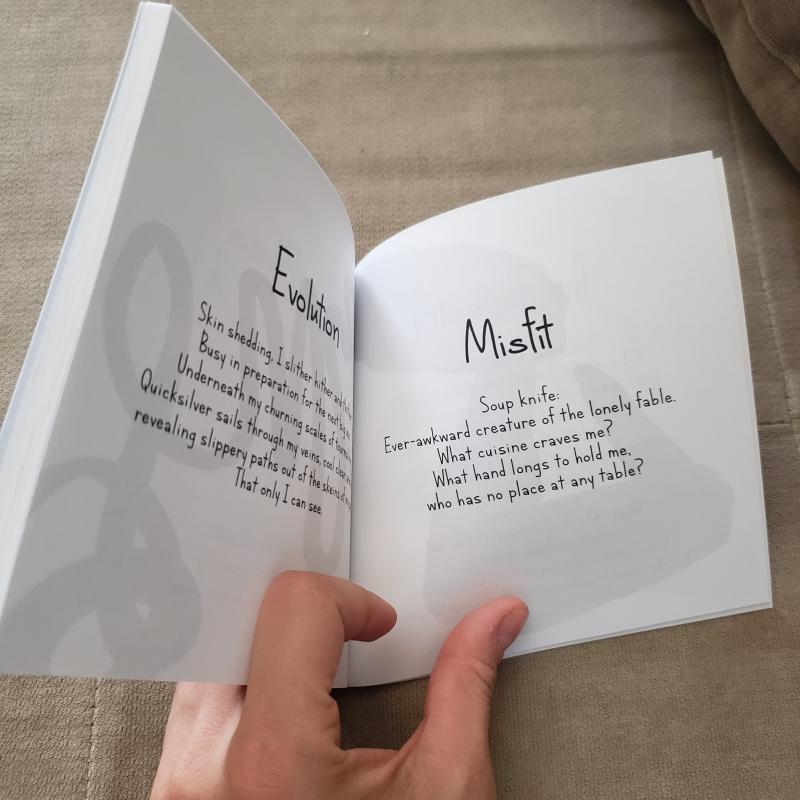 Evolution
Skin shedding, I slither hither and
Busy in preparation for the next big
Underneath my churning scales of
Quicksilver sails through my veins, cool clear
revealing slippery paths out of the skeins of
That only I can see.
Misfit
Soup knife:
Ever-awkward creature of the lonely fable.
What cuisine craves me?
What hand longs to hold me,
who has no place at any table?